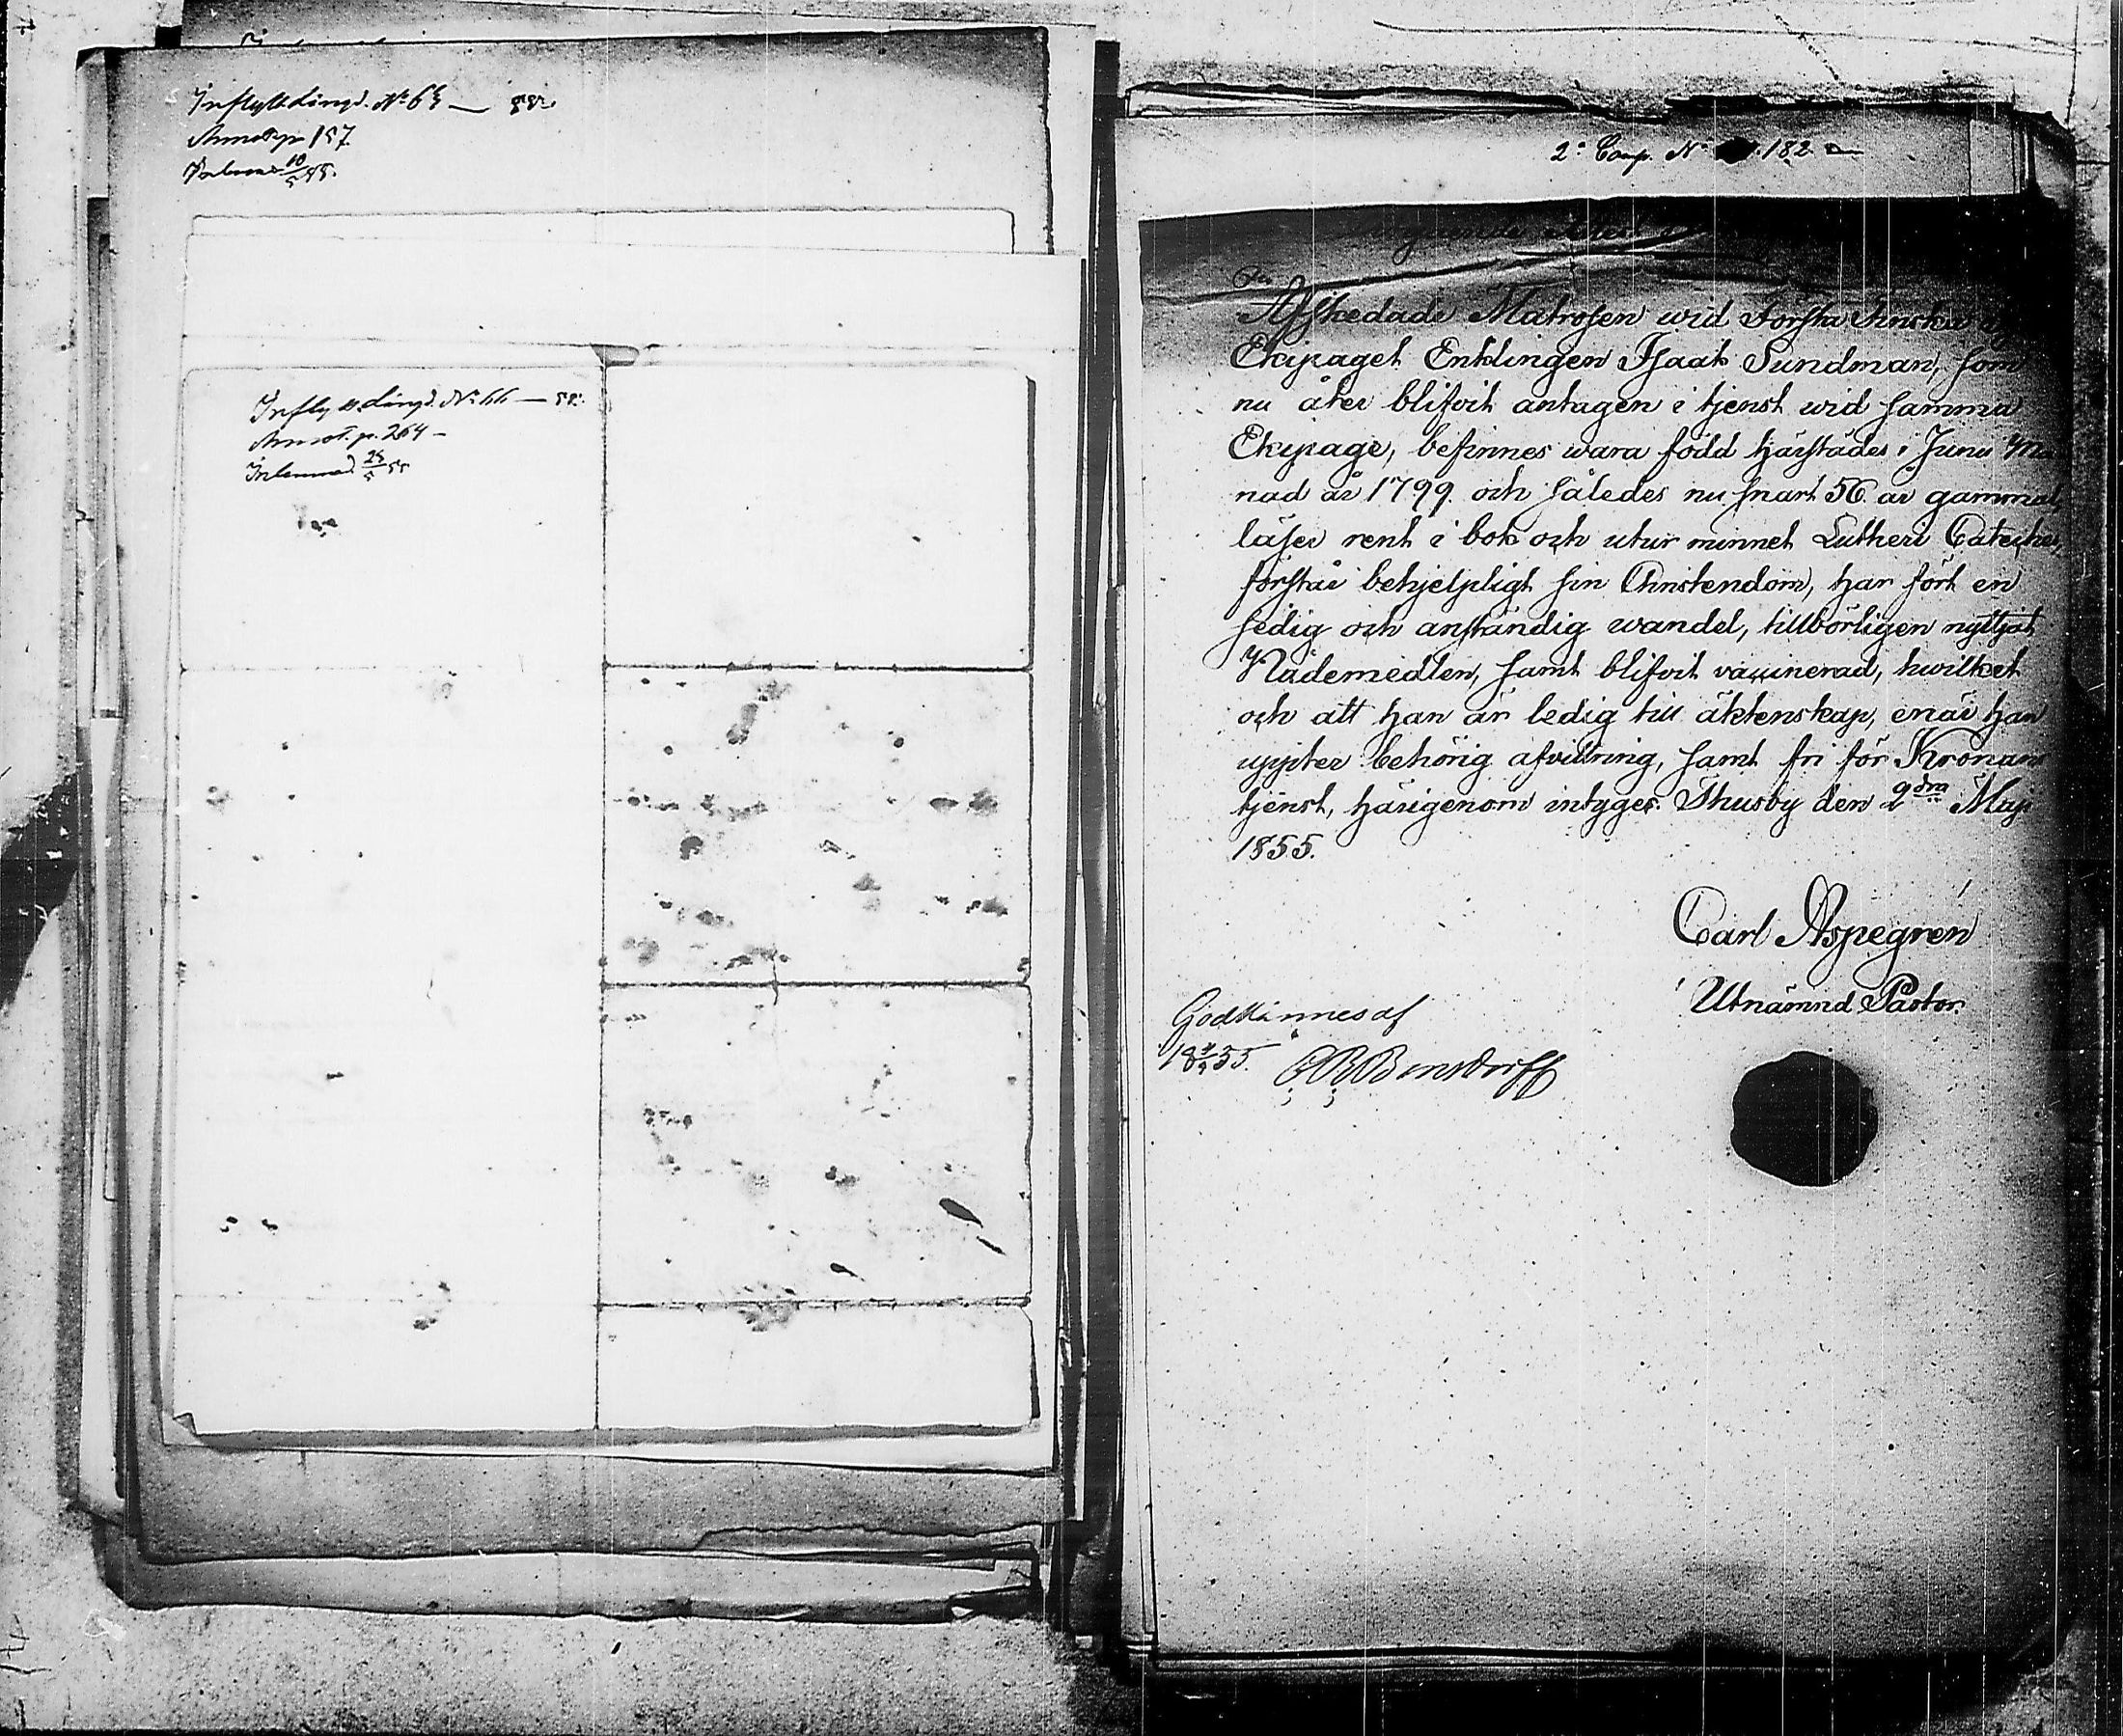 Inflyttdingd. No 65 — 55.
Annot. p. 157
Inlemnad 10/5 55.
Inflyttdingd. No 66 — 55.
Annot. p. 264 —
Inlemnad 25/5 55
2a Comp. No 182
Afskedade Matrosen wid Första Finska
Ekipaget Enklingen Isaak Sundman, som
nu åter blifvit antagen i tjenst wid samma
Ekipage, befinnes wara född härstädes i Junii Må
nad år 1799. och således nu snart 56. år gammal,
läser rent i bok och utur minnet Lutheri Cateches,
förstår behjelpligt sin Christendom, har fört en
sedig och anständig wandel, tillbörligen nyttjat
Nådemedlen, samt blifvit vaccinerad, hwilket
och att han är ledig till äktenskap, enär han
uppter behörig afvittring, samt fri för Kronans
tjenst, härigenom intygas. Thusby den 2dra Maji
1855.
Carl Aspegrén
Utnämnd Pastor.
Godkännes af
18 55. Bonsdorff